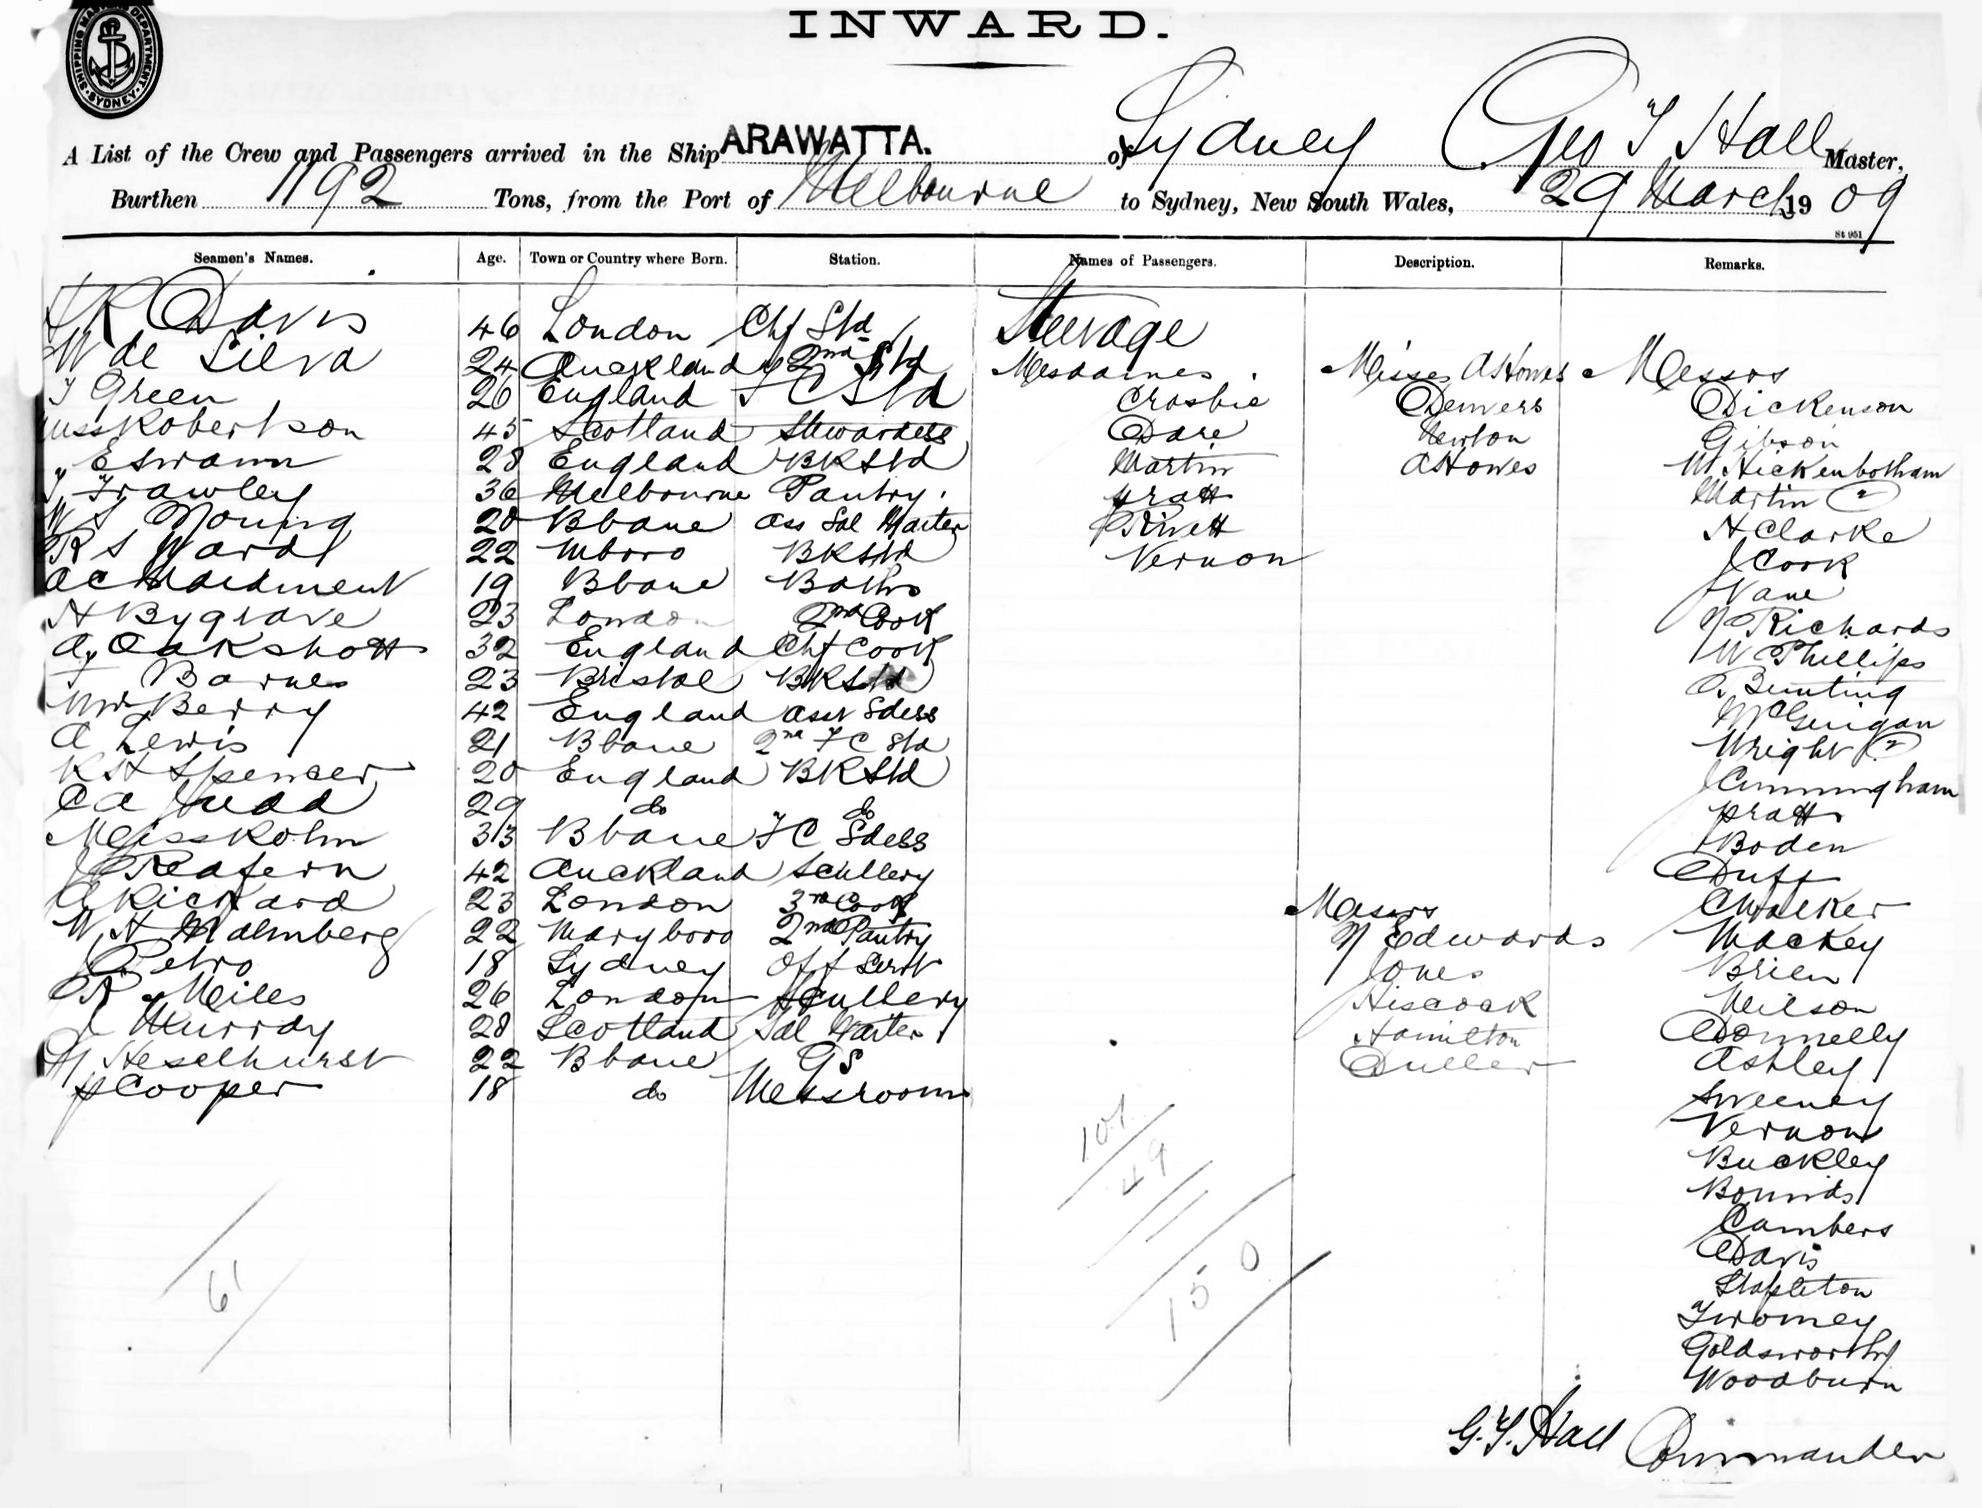 INWARD.
SHIPPING MASTERS DEPARTMENT SYDNEY
A List of the Crew and Passengers arrived in the Ship ARAWATTA. of Sydney Geo T Hall Master,
Burthen 1192 Tons, from the Port of Melbourne to Sydney, New South Wales, 29 March 1909
St 951
Seamen's Names. Age. Town or Country where Born. Station. Names of Passengers. Description. Remarks.
R Davis 46 London Chf Std Steerage
W de Silva 24 Auckland 2nd Std Mesdames Misses AStowes Messrs
T Green 26 England F C Std Crosbie Demers Dickenson
Miss Robertson 45 Scotland Stewardess Dare Newton Gibson
" E Swann 28 England BKStd Martin AStowes W Hickenbotham
T Frawley 36 Melbourne Pantry. Pratt Martin (2)
W S Young 20 Bbane Ass Sal Waiter Rivett H Clarke
R S Ward 22 Mboro BKStd Vernon J Cook
A C Maidment 19 Bbane Baths J Vane
H Bygrave 23 London 2nd Cook Y Richards
A. Oakshott 32 England Chf Cook W Phillips
F Barnes 23 Bristol BKStd A. Bunting
Mrs Berry 42 England Asst Sdess McGuigan
A Lewis 21 Bbane 2nd F C Std Wright (2)
R H Spencer 20 England BKStd J Cunningham
C A Judd 29 do do Pratt
Miss Kohn 33 Bbane F C Sdess Boden
J Redfern 42 Auckland Scullery Duff
A Rickard 23 London 3rd Cook Messrs C Walker
W H Malmberg 22 Maryboro 2nd Pantry Y Edwards Mackey
J Petro 18 Sydney Off Servt Jones Brien
R Miles 26 London Scullery Hiscock Wilson
J Murray 28 Scotland Sal Waiter Hamilton Donnelly
H Heselhurst 22 Bbane GS Duller Ashley
J Cooper 18 do Messroom Sweeney
Vernon
107 Buckley
49 Bounds
11 Cambers
61 150 Davis
Stapleton
Twomey
Goldsworthy
Woodburn
G. T. Hall Commander